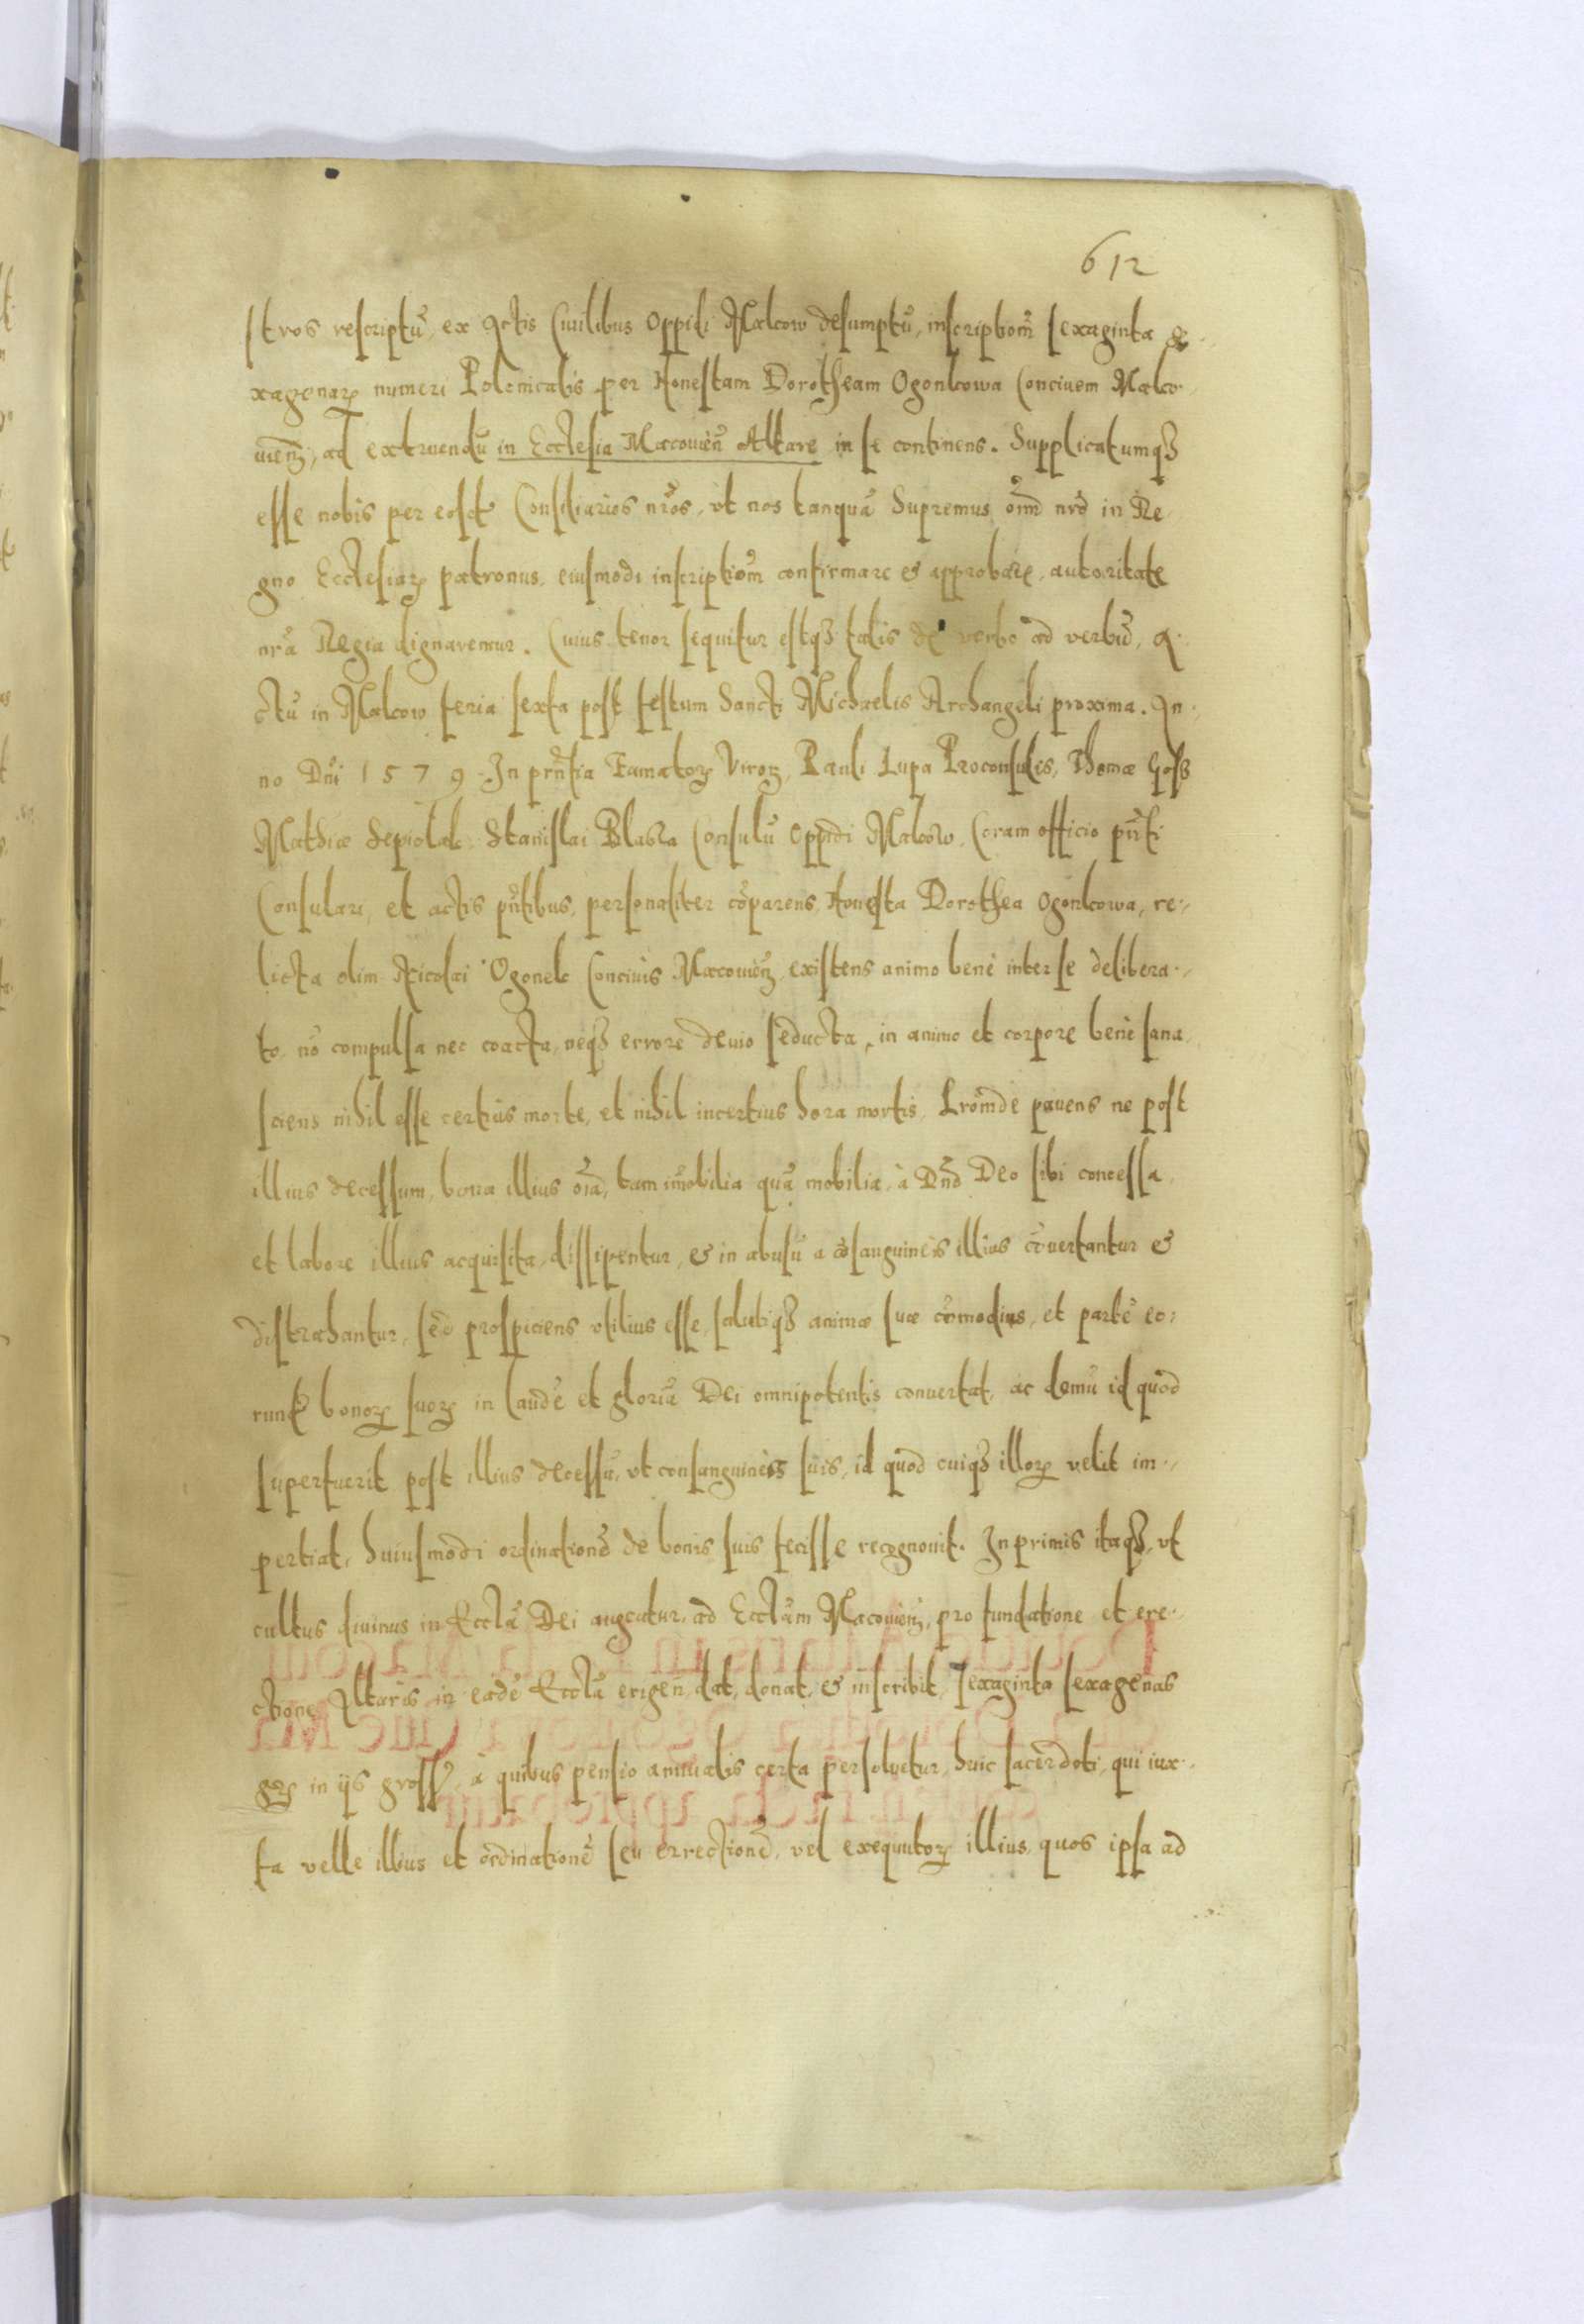 612
stros rescriptũ, ex Actis Ciuilibus Oppidi Makow desumptũ, inscriptiom̃ sexaginta se-
xagenarꝝ numeri Polonicalis per Honestam Dorotheam Ogonkowa Conciuem Mako-
uieñ, ad extruendũ in Ecclesia Macouieñ Altare in se continens. Supplicatumqꝫ
esse nobis per eosdẽ Consiliarios nr̃os, vt nos tanquã Supremus om̃ nr̃o in Re
gno Ecclesiarꝝ patronus, eiusmodi inscriptiom̃ confirmare & approbare, autoritate
nr̃a Regia dignaremur. Cuius tenor sequitur estqꝫ talis de verbo ad verbũ, A-
ctũ in Makow feria sexta post festum Sancti Michaelis Archangeli proxima. An-
no Dñi 1579. In prñtia Famatorꝝ Virorꝝ, Pauli Lupa Proconsulis, Thomæ Goss
Mathiæ Sepiolak Stanislai Blabla Consulũ Oppidi Makow, Coram officio pñti
Consulari, et actis pñtibus, personaliter cõparens, Honesta Dorothea Ogonkowa, re-
licta olim Nicolai Ogonek Conciuis Macouieñ, existens animo benè inter se delibera-
to, nõ compulsa nec coacta, neqꝫ errore deuio seducta, in animo et corpore benè sana,
sciens nihil esse certius morte, et nihil incertius hora mortis, pauens ne post
illius decessum, bona illius oĩa, tam im̃obilia quã mobilia, à Dño Deo sibi concessa,
et labore illius acquisita, dissipentur, & in abusũ a cõsanguineis illius cõuertantur &
distrahantur, sed prospiciens vtilius esse, salutiqꝫ animæ suæ com̃odius, et partẽ eo-
rundẽ bonorꝝ suorꝝ in laudẽ et gloriã Dei omnipotentis conuertat, ac demũ id quod
superfuerit post illius decessũ, vt consanguineis suis, id quod cuiqꝫ illorꝝ velit im-
pertiat, huiusmodi ordinationẽ de bonis suis fecisse recognouit. In primis itaqꝫ, vt
cultus diuinus in Ecclã Dei augeatur, ad Ecclãm Macouieñ, pro fundatione et ere-
ctione Altaris in eadẽ Ecclã erigeñ, dat, donat, & inscribit, sexaginta sexagenas
in ijs gross, à quibus pensio annualis certa persoluetur, huic sacerdoti, qui iux-
ta velle illius et ordinationẽ seu errectionẽ, vel exequutorꝝ illius, quos ipsa ad